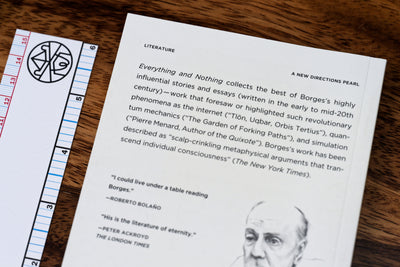 LITERATURE
A NEW DIRECTIONS PEARL
Everything and Nothing collects the best of Borges's highly
influential stories and essays (written in the early to mid-20th
century)—work that foresaw or highlighted such revolutionary
phenomena as the internet ("Tlön, Uqbar, Orbis Tertius"), quan-
tum mechanics ("The Garden of Forking Paths"), and simulation
("Pierre Menard, Author of the Quixote"). Borges's work has been
described as "scalp-crinkling metaphysical arguments that tran-
scend individual consciousness" (The New York Times).
"I could live under a table reading
Borges."
—ROBERTO BOLAÑO
"His is the literature of eternity."
—PETER ACKROYD
THE LONDON TIMES
6
5
4
3
2
15
14
13
12